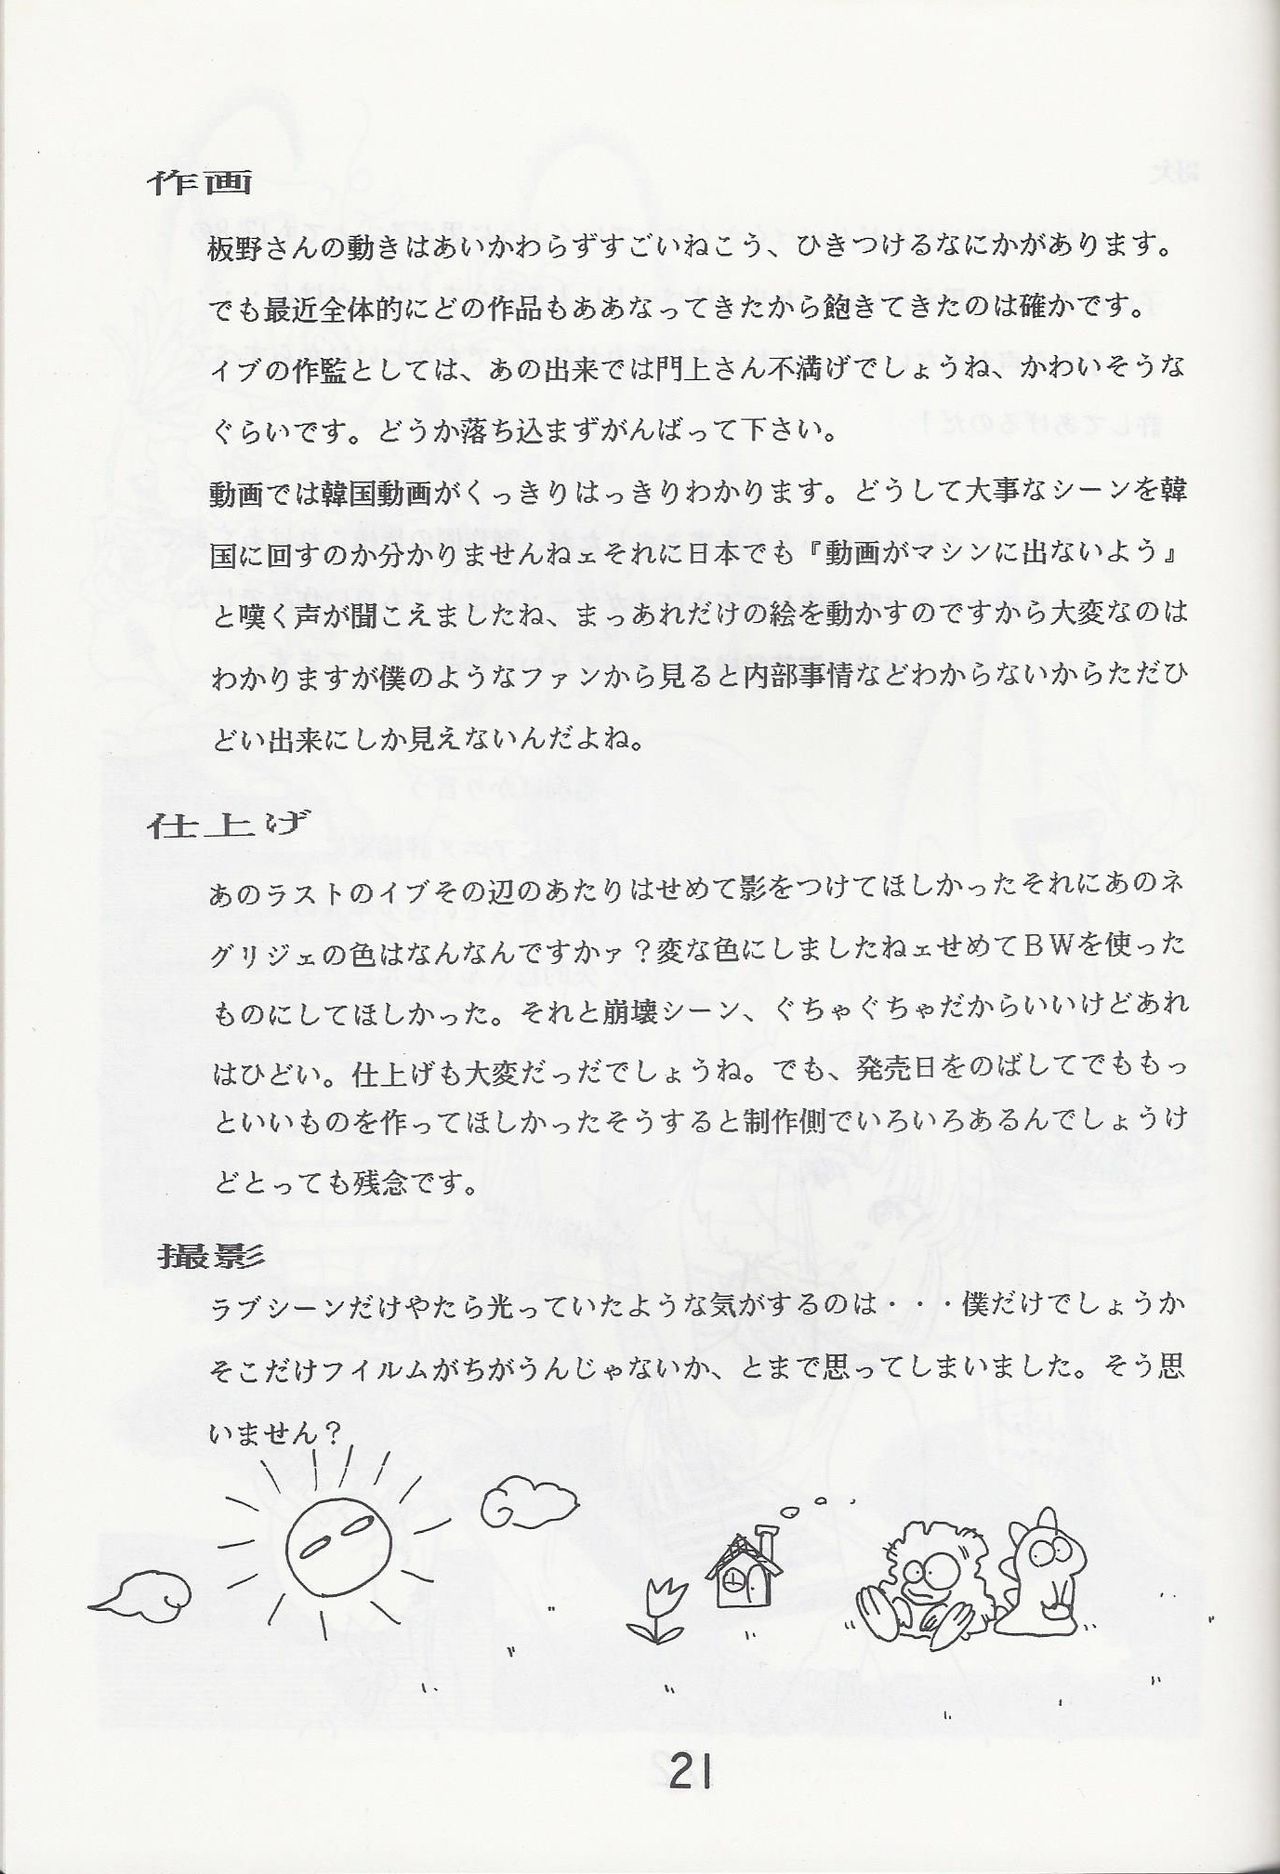 作画
板野さんの動きはあいかわらずすごいねこう、ひきつけるなにかがあります。
でも最近全体的にどの作品もああなってきたから飽きてきたのは確かです。
イブの作監としては、あの出来では門上さん不満げでしょうね、かわいそうな
ぐらいです。どうか落ち込まずがんばって下さい。
動画では韓国動画がくっきりはっきりわかります。どうして大事なシーンを韓
国に回すのか分かりませんねェそれに日本でも『動画がマシンに出ないよう』
と嘆く声が聞こえましたね、まっあれだけの絵を動かすのですから大変なのは
わかりますが僕のようなファンから見ると内部事情などわからないからただひ
どい出来にしか見えないんだよね。
仕上げ
あのラストのイブその辺のあたりはせめて影をつけてほしかったそれにあのネ
グリジェの色はなんなんですかァ？変な色にしましたねェせめてＢＷを使った
ものにしてほしかった。それと崩壊シーン、ぐちゃぐちゃだからいいけどあれ
はひどい。仕上げも大変だっだでしょうね。でも、発売日をのばしてでももっ
といいものを作ってほしかったそうすると制作側でいろいろあるんでしょうけ
どとっても残念です。
撮影
ラブシーンだけやたら光っていたような気がするのは・・・僕だけでしょうか
そこだけフイルムがちがうんじゃないか、とまで思ってしまいました。そう思
いません？
21